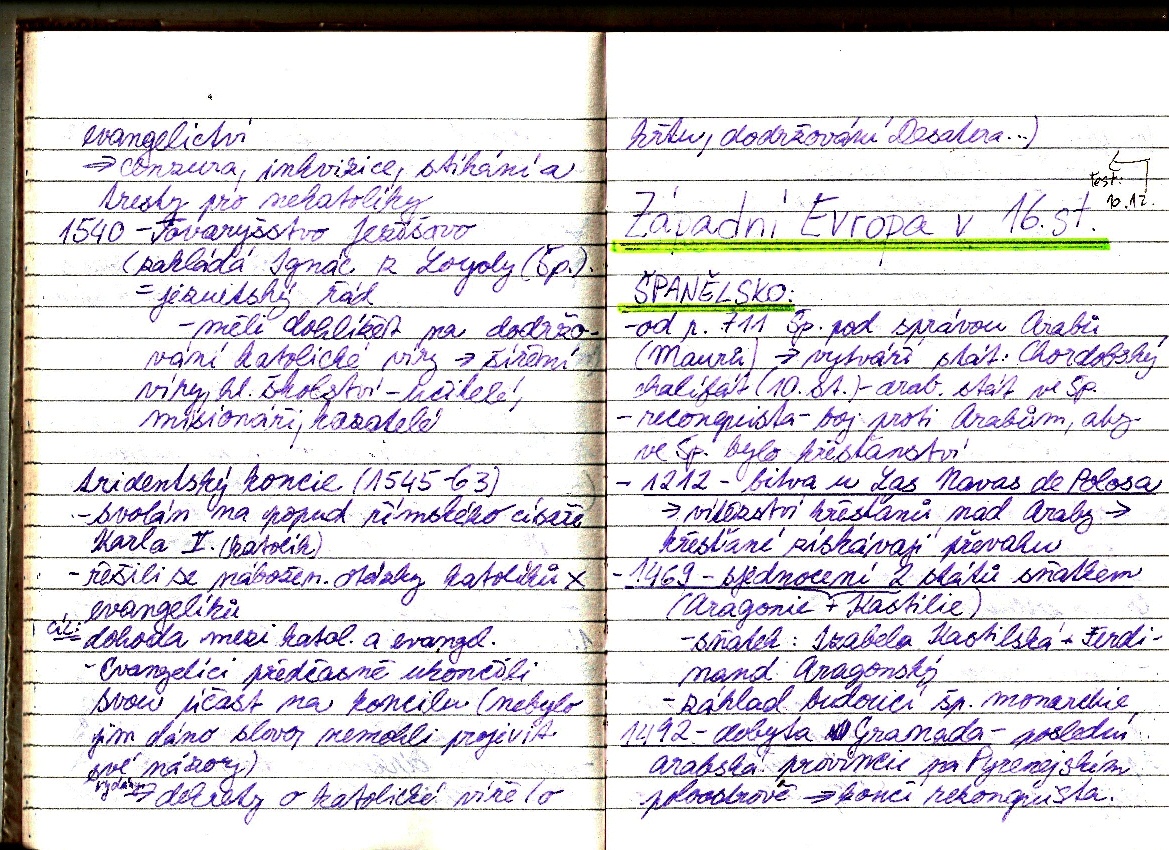 evangelictví
→ cenzura, inkvizice, stíhání a
tresty pro nekatolíky
1540 - Tovaryšstvo Ježíšovo
(zakládá Ignác z Loyoly (Šp.).
= jezuitský řád
- měli dohlížet na dodržo-
vání katolické víry → šíření
víry, hl. školství - učitelé,
misionáři, kazatelé
tridentský koncil (1545-63)
- svolán na popud římského císaře
Karla V. (katolík)
- řešili se nábožen. otázky katolíků x
evangelíků
cíl:
dohoda mezi katol. a evangel.
- Evangelíci předčasně ukončili
svou účast na koncilu (nebylo
jim dáno slovo, nemohli projevit
své názory)
vydán
→ dekrety o katolické víře (o
křtu, dodržování Desatera...)
test:
10.12.
Západní Evropa v 16.st.
ŠPANĚLSKO:
- od r. 711 Šp. pod správou Arabů
(Maurů) → vytváří stát: Chordobský
chalífát (10. st.) - arab. stát ve Šp.
- reconquista - boj proti Arabům, aby
ve Šp. bylo křesťanství
- 1212 - bitva u Las Navas de Polosa
→ vítězství křesťanů nad Araby →
křesťané získávají převahu
- 1469 - sjednocení 2 států sňatkem
(Aragonie + Kastilie)
- sňatek: Izabela Kastilská + Ferdi-
nand Aragonský
- základ budoucí šp. monarchie
1492 - dobyta Granada - poslední
arabská provincie na Pyrenejském
poloostrově → končí rekonquista.